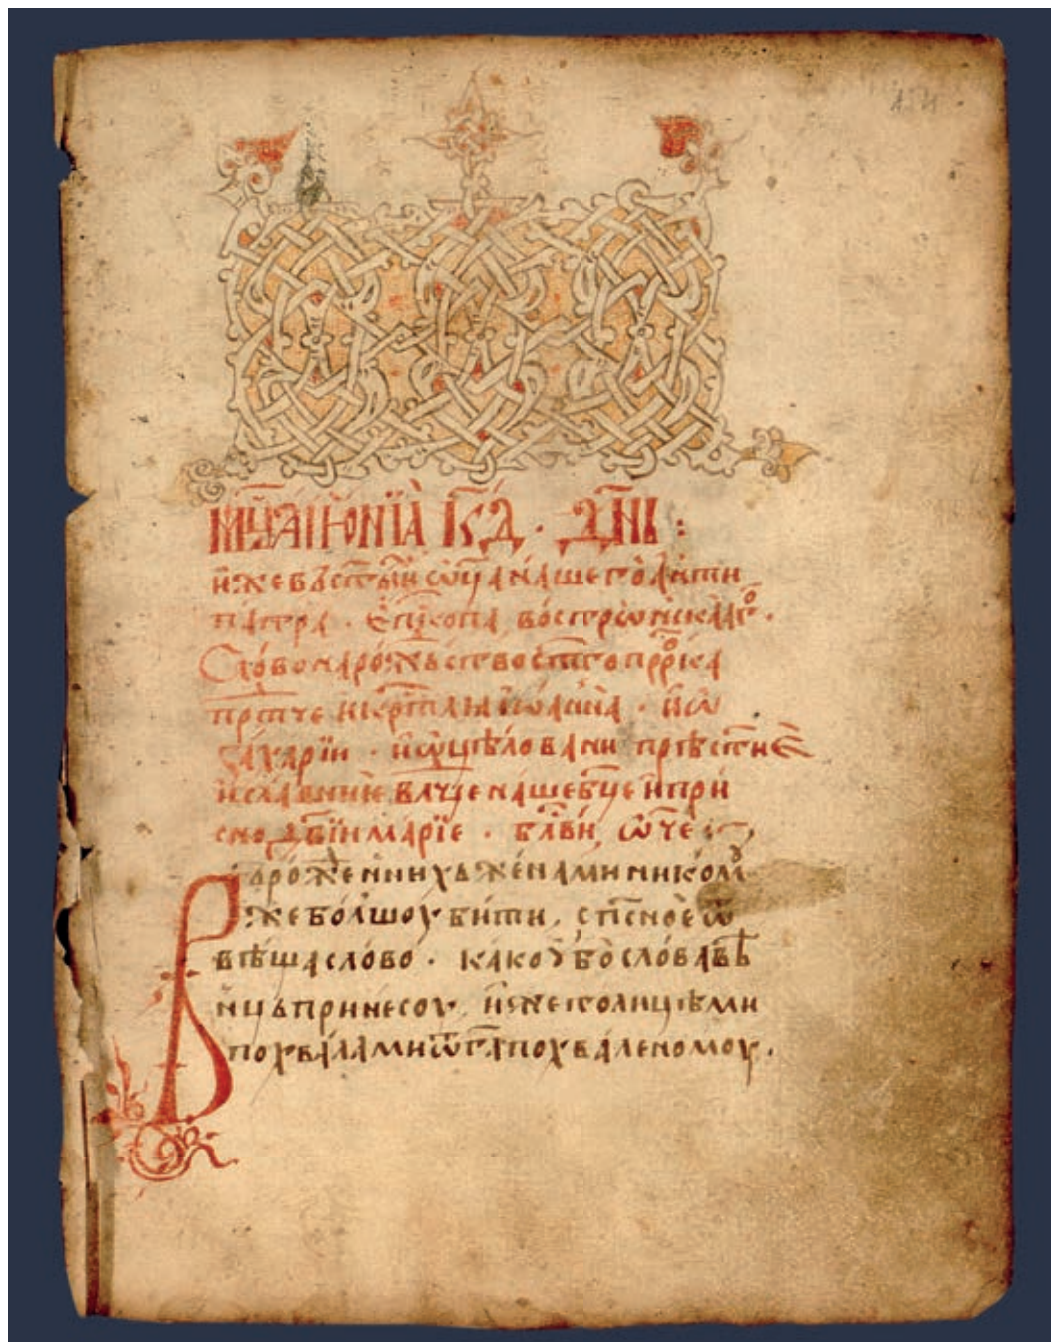 мц҃а июнїа к҃д · дн҃ь :
иже въ ст҃ыхъ ѡц҃а нашего анти
патра · еп҃скопа востръскааг ·
Слово на рожъство ст҃го пррⷪ҇ка
прⷣтче и крⷭ҇тлꙗ їѡанна · и ѡ
захарїи · и ѡ цѣловани прѣст҃ие
и славние влⷣчце наше бц҃е и при
сно дв҃їи марїе · блⷭ҇ви ѡч҃е
В рожениихъ женами ником
же болшоу бити, сп҃сное ѿ
вѣща слово · како ѹбо слова вѣ
нць принесоу, иже толицѣми
похвалами ѿ г҃а похваленомоу .